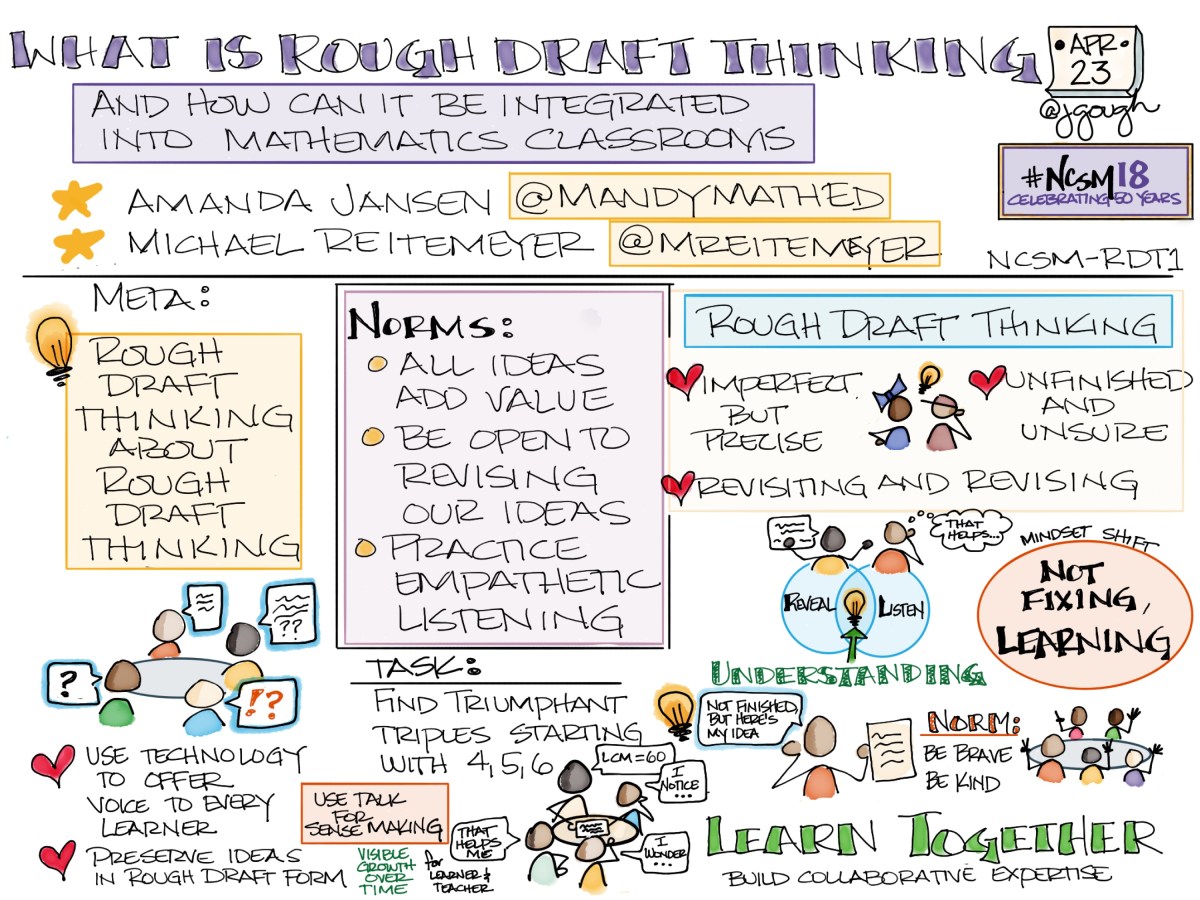 WHAT IS ROUGH DRAFT THINKING
•APR•
23
@jgough
AND HOW CAN IT BE INTEGRATED
INTO MATHEMATICS CLASSROOMS
#NCSM18
CELEBRATING 50 YEARS
AMANDA JANSEN @MANDYMATHED
MICHAEL REITEMEYER @MREITEMEYER
NCSM-RDT1
META:
ROUGH
DRAFT
THINKING
ABOUT
ROUGH
DRAFT
THINKING
NORMS:
ALL IDEAS
ADD VALUE
BE OPEN TO
REVISING
OUR IDEAS
PRACTICE
EMPATHETIC
LISTENING
ROUGH DRAFT THINKING
IMPERFECT
BUT
PRECISE
UNFINISHED
AND
UNSURE
REVISITING AND REVISING
THAT
HELPS...
REVEAL
LISTEN
UNDERSTANDING
MINDSET SHIFT
NOT
FIXING,
LEARNING
??
?
!?
USE TECHNOLOGY
TO OFFER
VOICE TO EVERY
LEARNER
PRESERVE IDEAS
IN ROUGH DRAFT FORM
USE TALK
FOR
SENSE MAKING
VISIBLE
GROWTH
OVER
TIME
for
LEARNER &
TEACHER
TASK:
FIND TRIUMPHANT
TRIPLES STARTING
WITH 4, 5, 6
LCM=60
I
NOTICE
...
THAT
HELPS
ME
I
WONDER...
NOT FINISHED,
BUT HERE'S
MY IDEA
NORM:
BE BRAVE
BE KIND
LEARN TOGETHER
BUILD COLLABORATIVE EXPERTISE